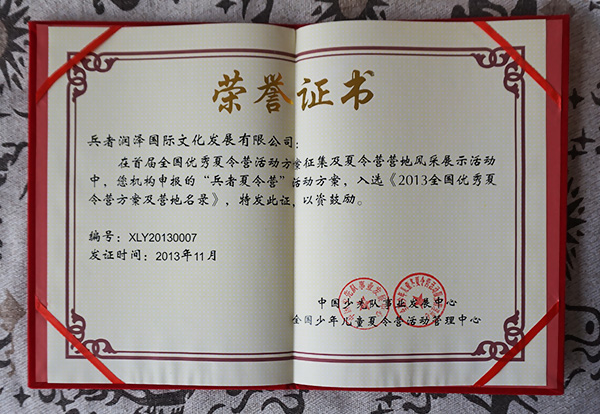 荣誉证书
兵者润泽国际文化发展有限公司：
在首届全国优秀夏令营活动方案征集及夏令营营地风采展示活动
中，您机构申报的“兵者夏令营”活动方案，入选《2013全国优秀夏
令营方案及营地名录》，特发此证，以资鼓励。
编号：XLY20130007
发证时间：2013年11月
中国少先队事业发展中心
全国少年儿童夏令营活动管理中心